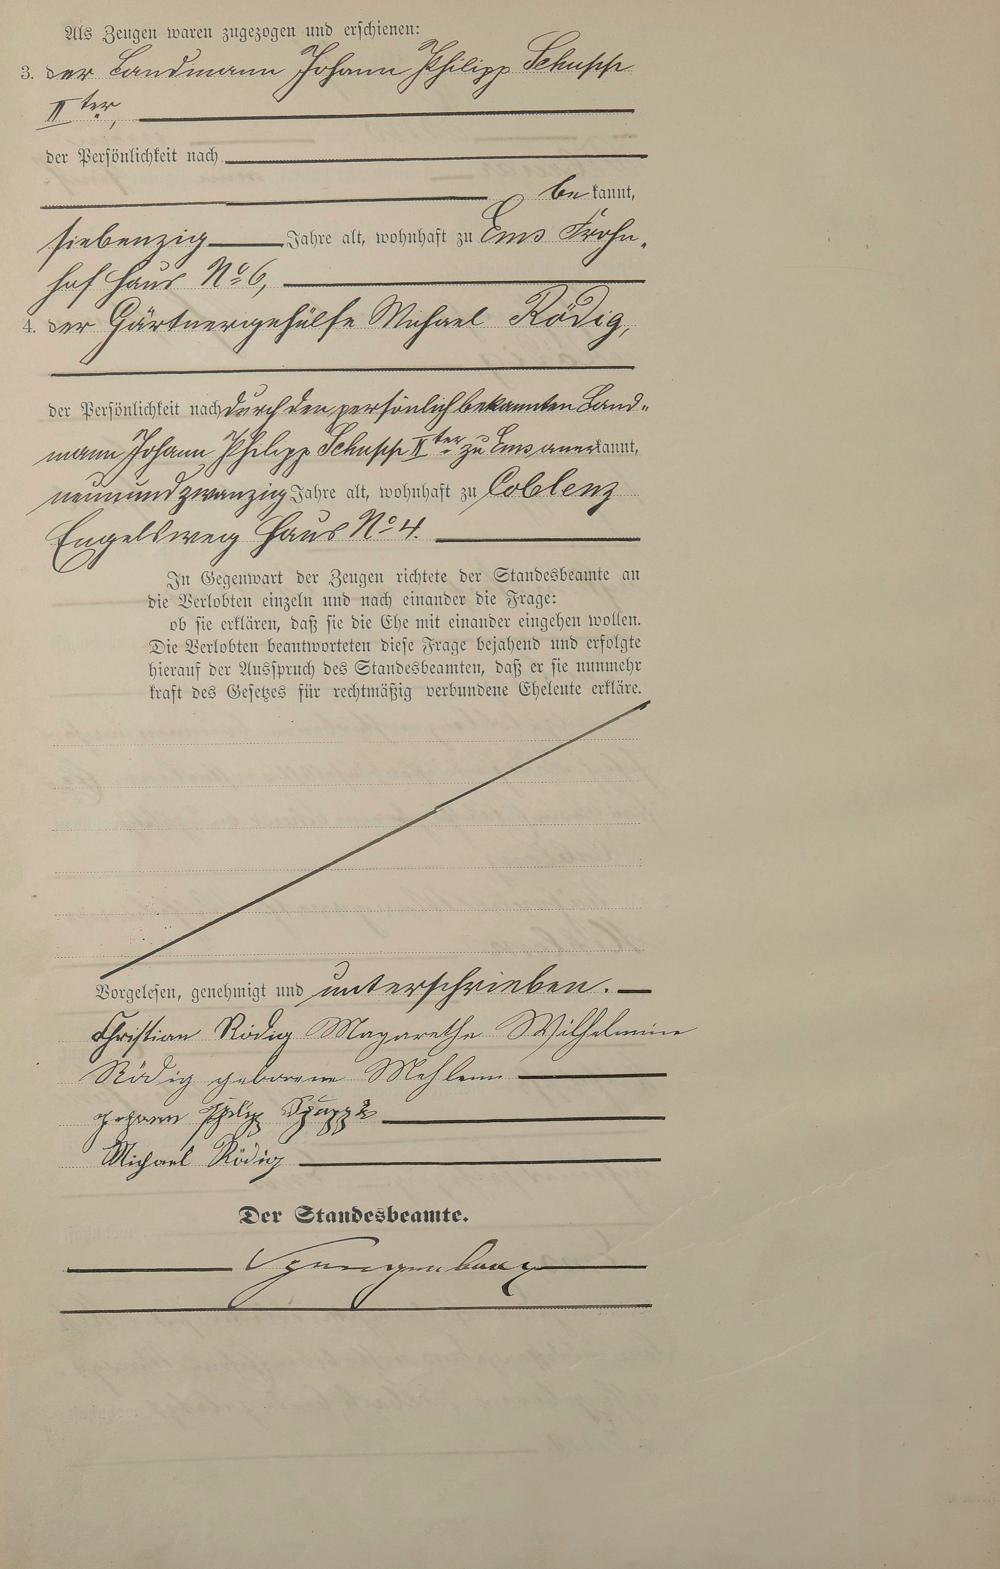 Als Zeugen waren zugezogen und erschienen:
3. der Landmann Johann Philipp Schupp
II ter,
der Persönlichkeit nach
be kannt,
siebenzig Jahre alt, wohnhaft zu Ems Frohn-
hof Haus No 6,
4. der Gärtnergehülfe Michael Rödig,
der Persönlichkeit nach durch den persönlich bekannten Land-
mann Johann Philipp Schupp II ter zu Ems anerkannt,
neunundzwanzig Jahre alt, wohnhaft zu Coblenz
Engelsweg Haus No 4.
In Gegenwart der Zeugen richtete der Standesbeamte an
die Verlobten einzeln und nach einander die Frage:
ob sie erklären, daß sie die Ehe mit einander eingehen wollen.
Die Verlobten beantworteten diese Frage bejahend und erfolgte
hierauf der Ausspruch des Standesbeamten, daß er sie nunmehr
kraft des Gesetzes für rechtmäßig verbundene Eheleute erkläre.
Vorgelesen, genehmigt und unterschrieben.
Christian Rödig Magarethe Wilhelmine
Rödig geborene Mehlem
Johann Philip Schupp
Michael Rödig
Der Standesbeamte.